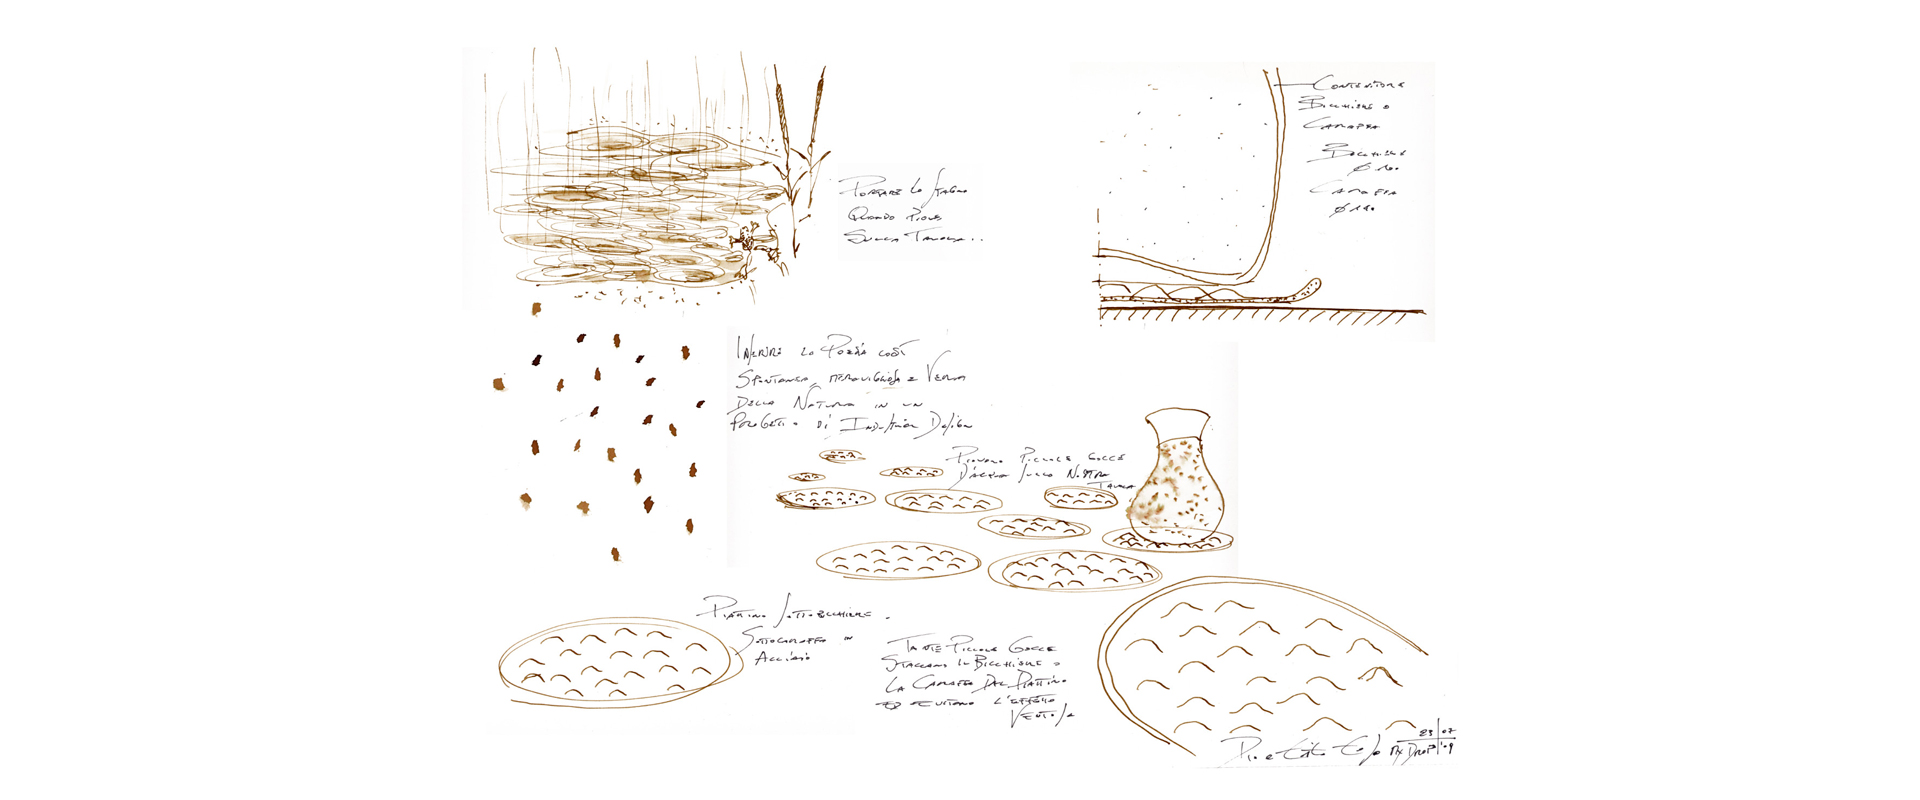 Portare lo stagno
Quando Piove
Sulla Tavola..
Contenitore
Bicchiere o
Caraffa
Bicchiere
Caraffa
Inserire la Poesia così
Spontanea, meravigliosa e Vera
Della Natura in un
Progetto di Industrial Design
Piovono Piccole Gocce
D'acqua sulla Nostra
Tavola
Piattino sottobicchiere.
Sottocaraffa in
Acciaio
Tante Piccole Gocce
Staccano il Bicchiere o
La Caraffa Dal Piattino
evitano l'effetto
Ventosa
23 07
Pio e Tito Toso Drop '09